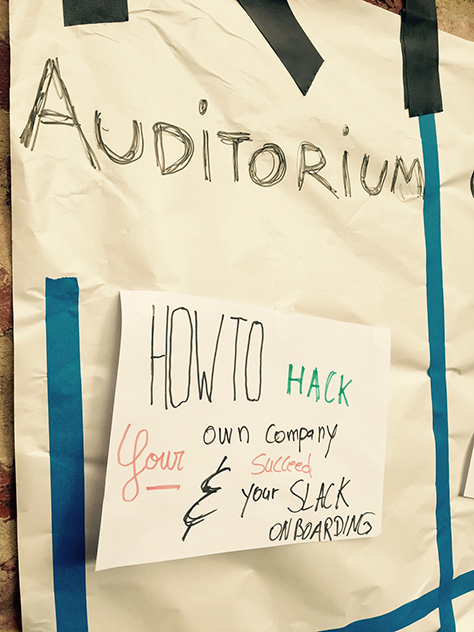 AUDiTORiUM
HOW TO HACK
Your own company
& Succeed
your SLACK
ONBOARDING